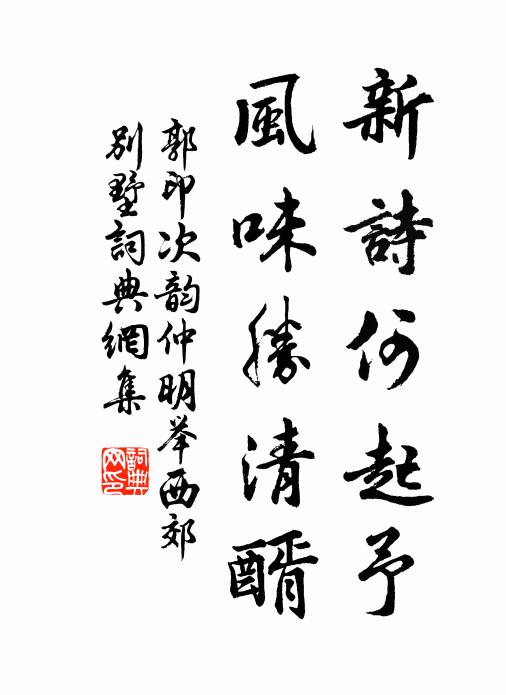 新詩何起予
風味勝清醑
郭印次韵仲明举西郊
别墅詞典網集
詞典网印